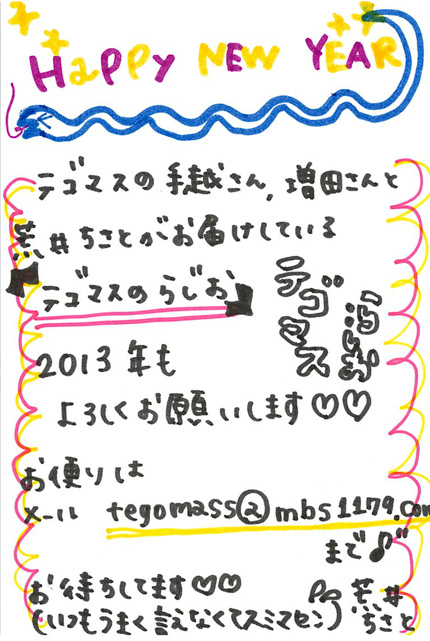 HAPPY NEW YEAR
テゴマスの手越さん,増田さんと
荒井ちさとがお届けしている
テゴマスのらじお
テゴマス
らじお
2013年も
よろしくお願いします♡♡
お便りは
メール tegomass@mbs1179.com
まで♪
お待ちしてます♡♡
(いつもうまく言えなくてスミマセン)
荒井
ちさと